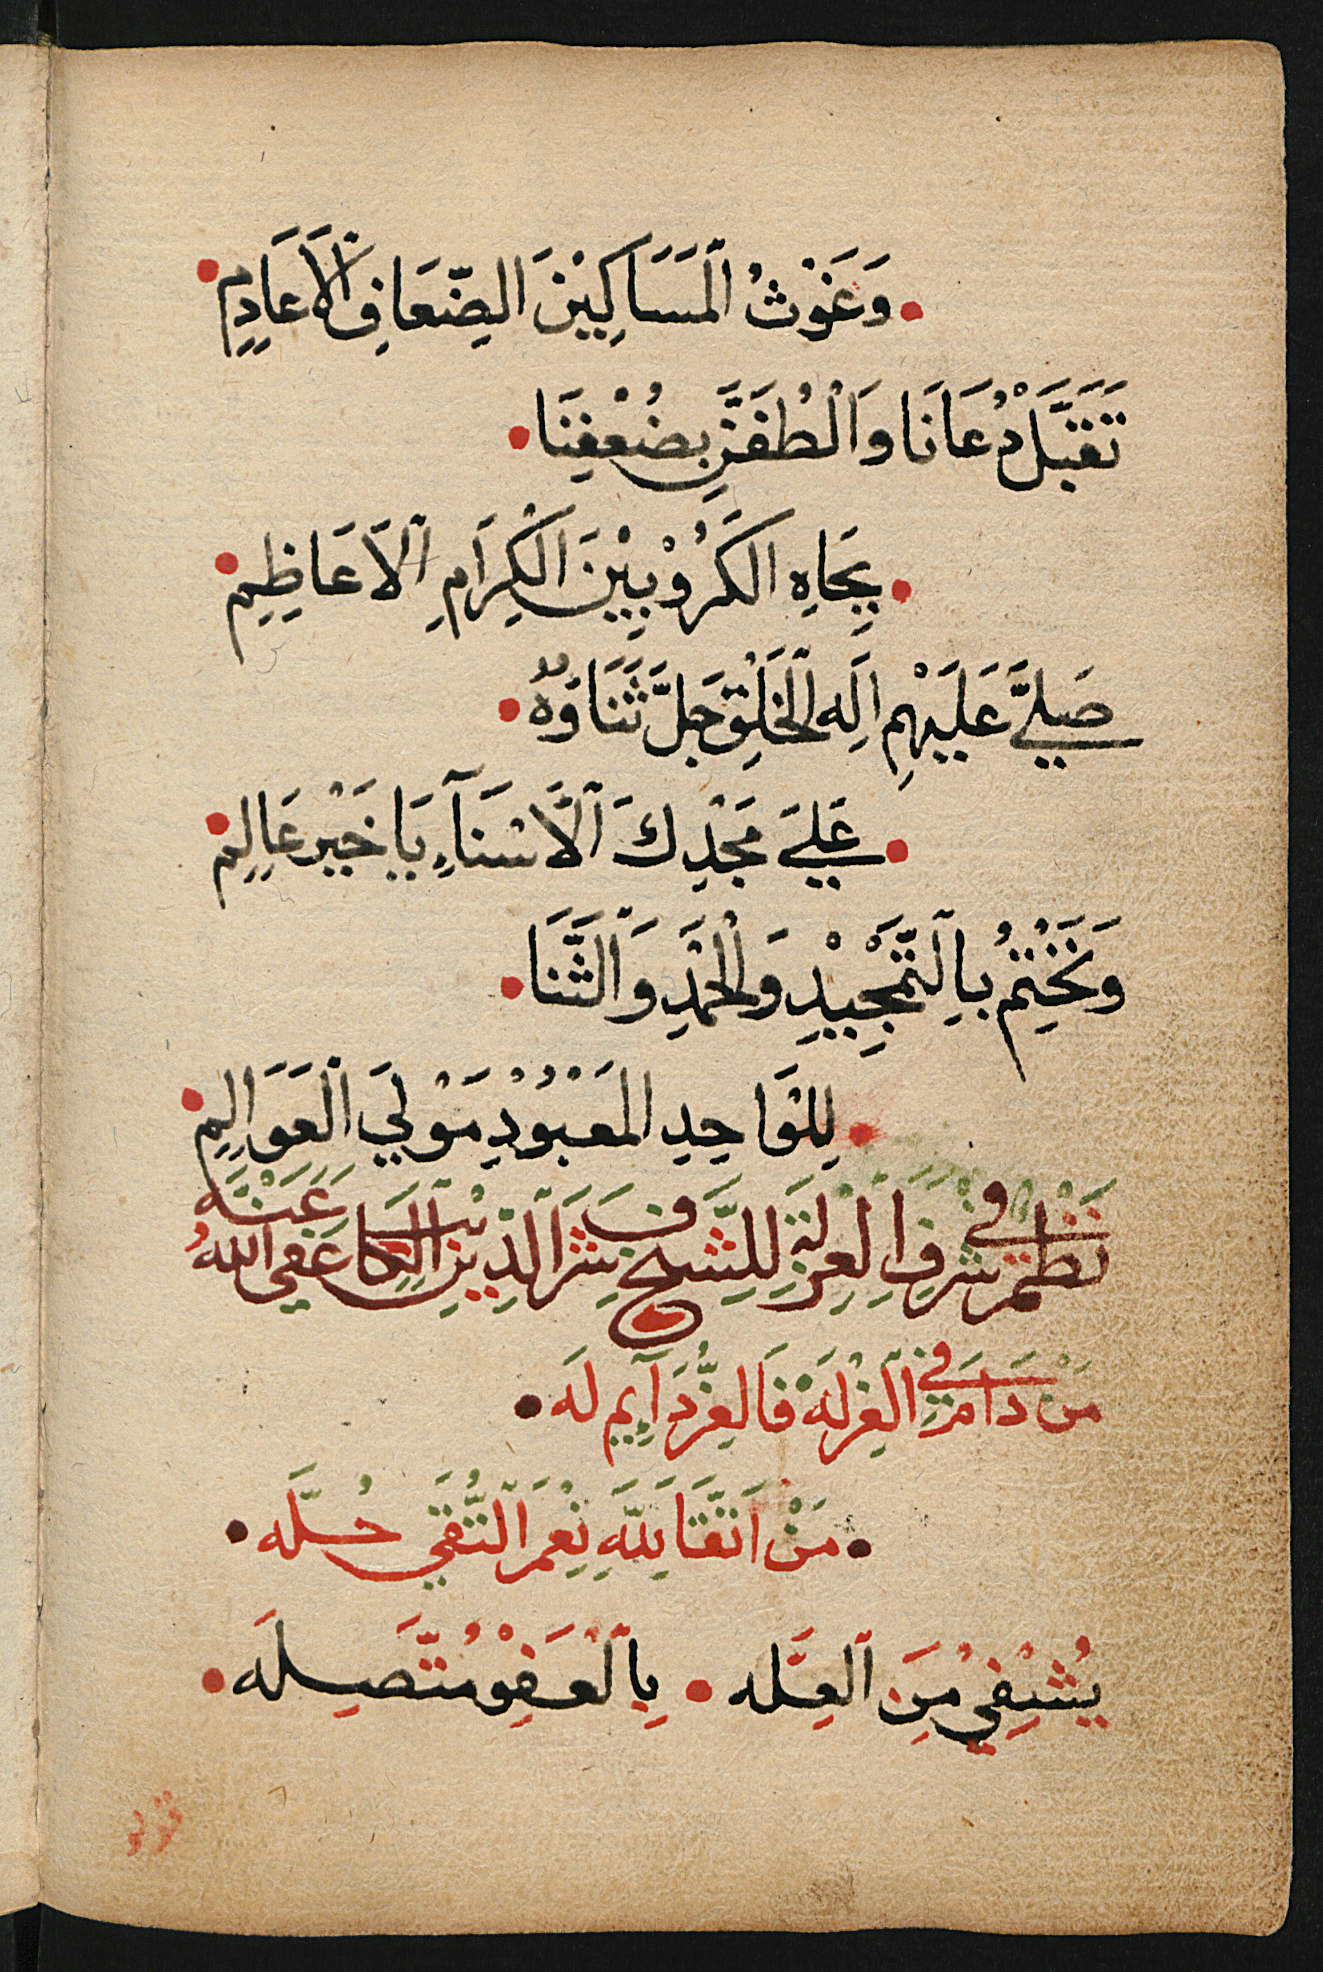 وَغَوْثُ الْمَسَاكِيْنَ الضِّعَافِ الْاَعَادِمِ
تَقَبَّلْ دُعَانَا وَالْطُفَنَّ بِضُعْفِنَا
بِجَاهِ الكَرُوْبِيْنَ الْكِرَامِ الَاعَاظِمِ
صَلَّيَ عَلَيْهِمِ اِلَه الْخَلْقِ جَلَّ ثَنَاوُهُ
عَلَيَ مَجْدِكَ الَاسْنَآءِ يَا خَيْرَ عَالِمِ
وَنَخْتِمُ بِالتَّمْجِيْدِ وَالْحَمْدِ وَالثَّنَا
لِلْوَاحِدِ الْمَعْبُوْدِ مَوْلَي الْعَوَالِمِ
نَظْمٌ في شَرَفِ الْعِزْلَةِ لِلشَّيخِ شَرَف الدِّيْنِ عَفَي اللهُ عَنْهُ
مَنْ دَامَ في الْعِزْلَهْ فَالعِزُّ دَآيِم لَه
مَنْ اتَّقَا لِلَّهِ نِعْمَ التُّقَي حُلَّه
يُشْفِي مِنَ الْعِلَّه بِالْعَفْوِ مُتَّصِلَه